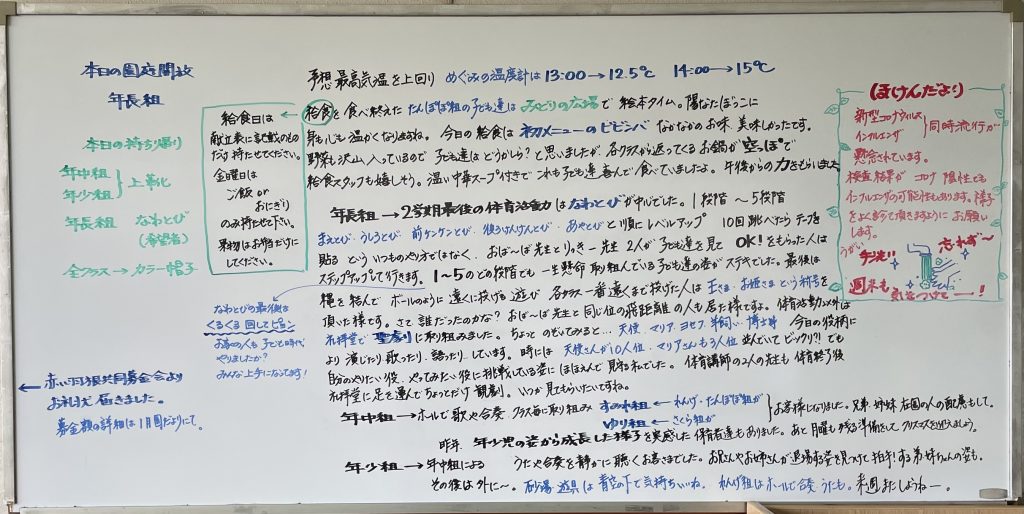 本日の園庭開放
年長組
本日の持ち帰り
年中組
年少組
上靴
年長組 なわとび
(希望者)
全クラス→カラー帽子
なわとびの最後は
くるくる回してピョン
お家の人も子ども時代
やりましたか?
みんな上手になってます!
←赤い羽根共同募金会より
お礼状届きました。
募金額の詳細は1月園だよりにて。
給食日は
献立表に記載のもの
だけ持たせてください。
金曜日は
ご飯 or
おにぎり
のみ持たせ下さい。
果物はお弁当だけに
してください。
予想最高気温を上回り めぐみの温度計は 13:00→12.5℃ 14:00→15℃
給食を食べ終えたたんぽぽ組の子ども達はみどりの広場で絵本タイム。陽なたぼっこに
身も心も温かくなりますね。今日の給食は初メニューのビビンバ なかなかのお味 美味しかったです。
野菜も沢山入っているので子ども達はどうかしら?と思いましたが、各クラスから返ってくるお鍋が空っぽで
給食スタッフも嬉しそう。温い中華スープ付きでこれも子ども達喜んで食べていましたよ。午後からの力をもらいました
年長組→2学期最後の体育活動はなわとびが中心でした。1段階〜5段階
まえとび・うしろとび・前ケンケンとび・後ろけんけんとび・あやとびと順にレベルアップ 10回跳べたらテープを
貼るといういつものやり方ではなく、おばーば先生とりっきー先生 2人が子ども達を見て OK!をもらった人は
ステップアップして行きます。1〜5のどの段階でも一生懸命取り組んでいる子ども達の姿がステキでした。最後は
縄を結んでボールのように遠くに投げる遊び 各クラス一番遠くまで投げた人は王さま・お姫さまという称号を
頂いた様です。さて誰だったのかな?おばーば先生と同じ位の飛距離の人も居た様ですよ。体育活動以外は
礼拝堂で聖劇に取り組みました。ちょっとのぞいてみると… 天使、マリア ヨセフ 羊飼い・博士等 今日の役柄に
より演じたり歌ったり、語ったりしています。時には天使さんが10人位・マリアさんも3人位並んでいてビックリ?!でも
自分のやりたい役・やってみたい役に挑戦している姿にほほえんで見守る私でした。体育講師の2人の先生も体育終了後
礼拝堂に足を運んでちょっとだけ観劇。いつか見てもらいたいですね。
年中組→ホールで歌や合奏 クラス毎に取り組み すみれ組←れんげ・たんぽぽ組が
ゆり組←さくら組が
お客様になりました。兄弟姉妹在園の人の配慮もして。
昨年 年少児の姿から成長した様子を実感した保育者達もありました。あと月曜も残る準備をしてクリスマスを迎えましょう。
年少組→年中組による うたや合奏を静かに聴くお客さまでした。お兄さんやお姉さんが退場する姿を見つけて拍手!する弟妹ちゃんの姿も。
その後は外に〜。砂場 遊具は青空の下で気持ちいいね。れんげ組はホールで合奏 うたも。来週またしようねー。
ほけんだより
新型コロナウイルス
インフルエンザ
同時流行が
懸念されています。
検査結果が コロナ陰性でも
インフルエンザの可能性もあります。様子
をよくみて頂きますように お願い
します。
うがい
手洗い
忘れず〜
週末も
気をつけてー!